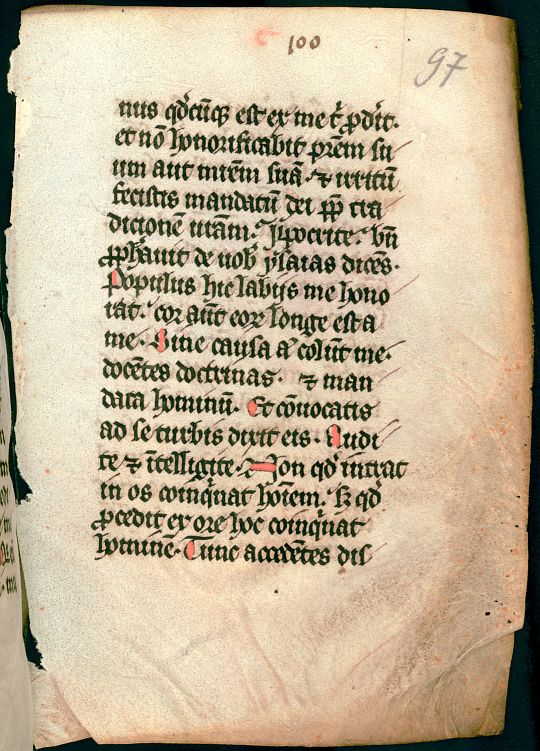 100
97
nus qd̄cūq; est ex me t̄ ꝓdīt.
et nō honorificabit prēm su
um aut mrēm suā. ⁊ irritū
fecistis mandatū dei ꝓp̄ tra
dicionē urām. Ypocrite. bn̄
ꝓph̄auit de uob̄ ysaias dicēs.
Populus hic labijs me hono
rat. cor aūt eoꝝ longe est a
me. Sine causa a᷒ colūt me.
docētes doctrinas. ⁊ man
data hominū. Et cōuocatis
ad se turbis dixit eis. Audi
te ⁊ ītelligite. Non qd̄ intrat
in os coinq̄nat hoīem. sꝫ qd̄
ꝓcedit ex ore hoc coinq̄nat
hominē. Tunc accedētes dis